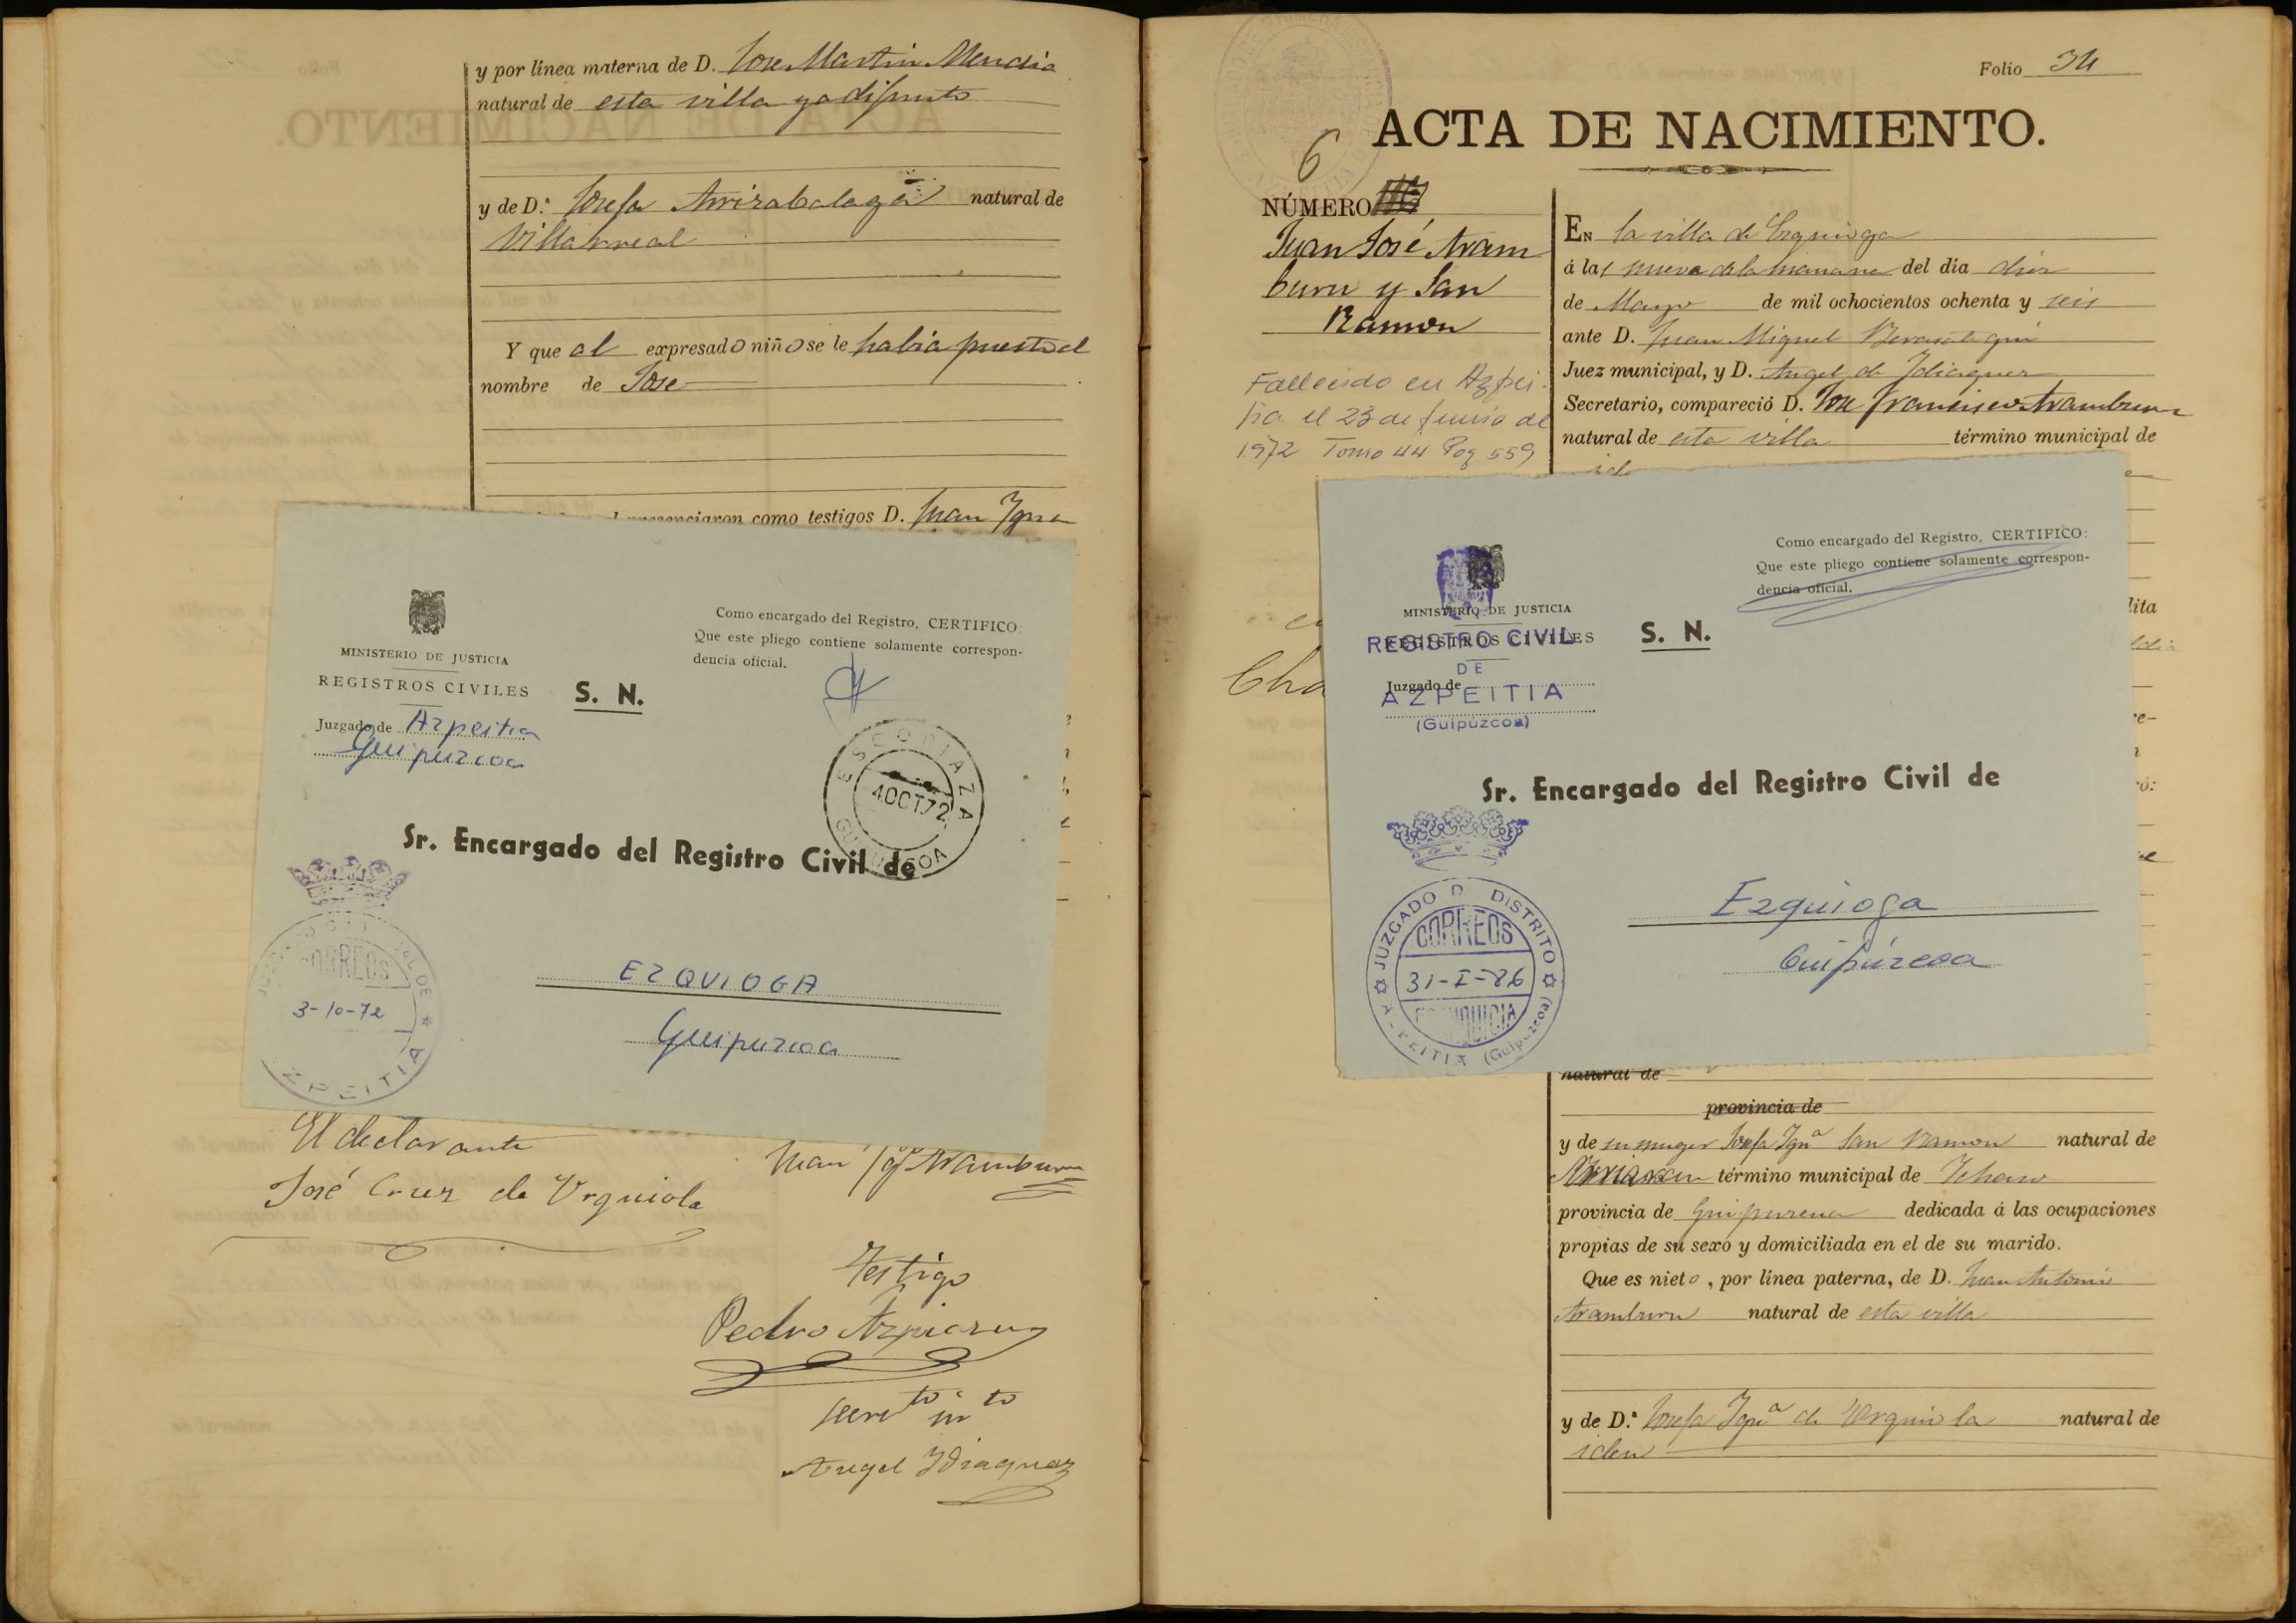 y por línea materna de D. Jose Martin Mendia
natural de esta villa ya difunto
y de D.ª Josefa Arrizabalaga natural de
Villarreal
Y que al expresado niño se le habia puesto el
nombre de Jose
presenciaron como testigos D. Juan Igna
MINISTERIO DE JUSTICIA
REGISTROS CIVILES
Juzgado de Azpeitia
Guipuzcoa
S. N.
Como encargado del Registro, CERTIFICO:
Que este pliego contiene solamente correspon-
dencia oficial.
ESCORIAZA
4 OCT 72
GUIPUZCOA
Sr. Encargado del Registro Civil de
CORREOS
3-10-72
AZPEITIA
EZQUIOGA
Guipuzcoa
El declarante
José Cruz de Urquiola
Juan Aramburu
Testigo
Pedro Azpiazu
Angel Idiaquez
Folio 34
ACTA DE NACIMIENTO.
6
NÚMERO
Juan José Aram
buru y San
Ramon
Fallecido en Azpei-
tia el 23 de Junio de
1972 Tomo 44 Pag 559
En la villa de Ezquioga
á las nueve de la mañana del día diez
de Marzo de mil ochocientos ochenta y seis
ante D. Juan Miguel Berasategui
Juez municipal, y D. Angel de Idiaquez
Secretario, compareció D. Jose Francisco Aramburu
natural de esta villa término municipal de
MINISTERIO DE JUSTICIA
REGISTROS CIVILES
REGISTRO CIVIL
DE
Juzgado de
AZPEITIA
(Guipúzcoa)
S. N.
Como encargado del Registro, CERTIFICO:
Que este pliego contiene solamente correspon-
dencia oficial.
Sr. Encargado del Registro Civil de
JUZGADO D DISTRITO
CORREOS
31-I-86
FRANQUICIA
AZPEITIA (Guipuzcoa)
Ezquioga
Guipúzcoa
natural de
provincia de
y de su muger Josefa Ign.ª San Ramon natural de
término municipal de Ichaso
provincia de Guipuzcoa dedicada á las ocupaciones
propias de su sexo y domiciliada en el de su marido.
Que es nieto, por línea paterna, de D. Juan Antonio
Aramburu natural de esta villa
y de D.ª Josefa Ign.ª de Urquiola natural de
iden